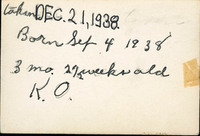 taken DEC. 21, 1938
Born Sep 4 1938
3 mo. 2½ weeks old
K. O.